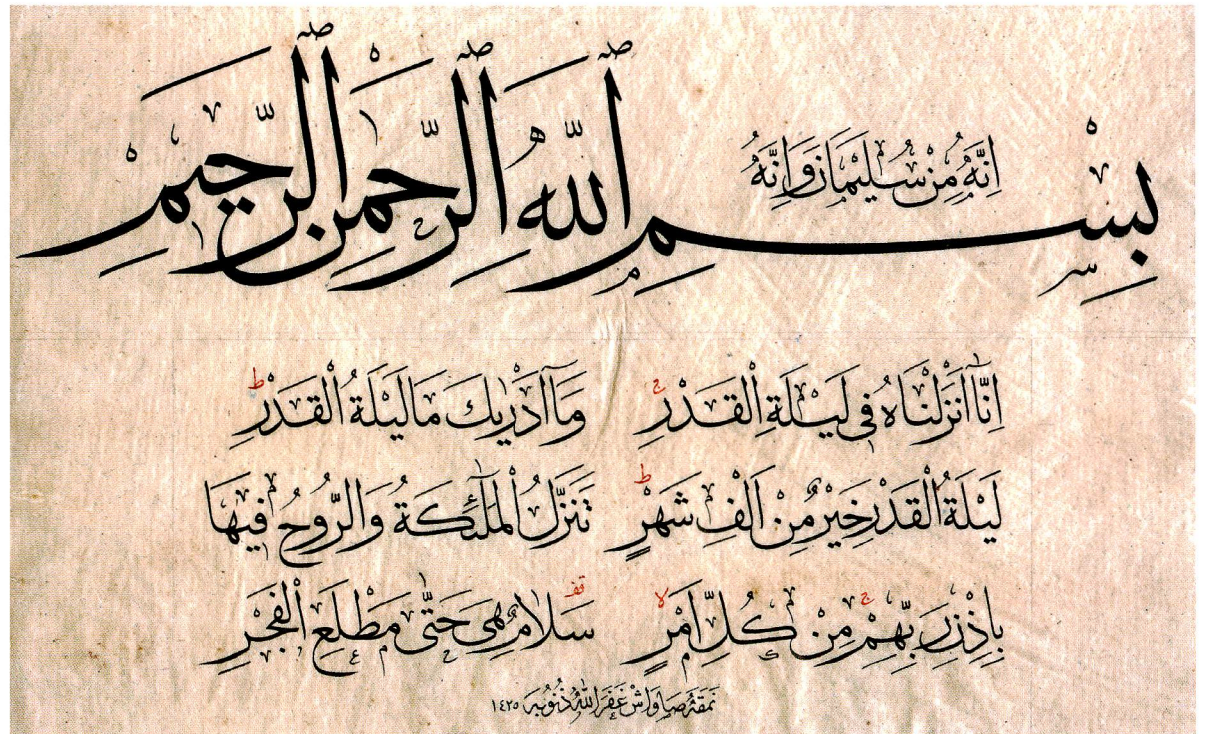 اِنَّهُ مِنْ سُلَيْمَانَ وَاِنَّهُ
بِسْمِ اللّٰهِ الرَّحْمٰنِ الرَّحِيمِ
اِنَّٓا اَنْزَلْنَاهُ فِى لَيْلَةِ الْقَدْرِ ج وَمَٓا اَدْرٰيكَ مَا لَيْلَةُ الْقَدْرِ ط
لَيْلَةُ الْقَدْرِ خَيْرٌ مِنْ اَلْفِ شَهْرٍ ط تَنَزَّلُ الْمَلٰٓئِكَةُ وَالرُّوحُ فِيهَا
بِاِذْنِ رَبِّهِمْ ج مِنْ كُلِّ اَمْرٍ لا سَلَامٌ قف هِىَ حَتّٰى مَطْلَعِ الْفَجْرِ
نَمَقَهُ صَاواش غَفَرَ اللّٰهُ ذُنُوبَهُ ١٤٢٥